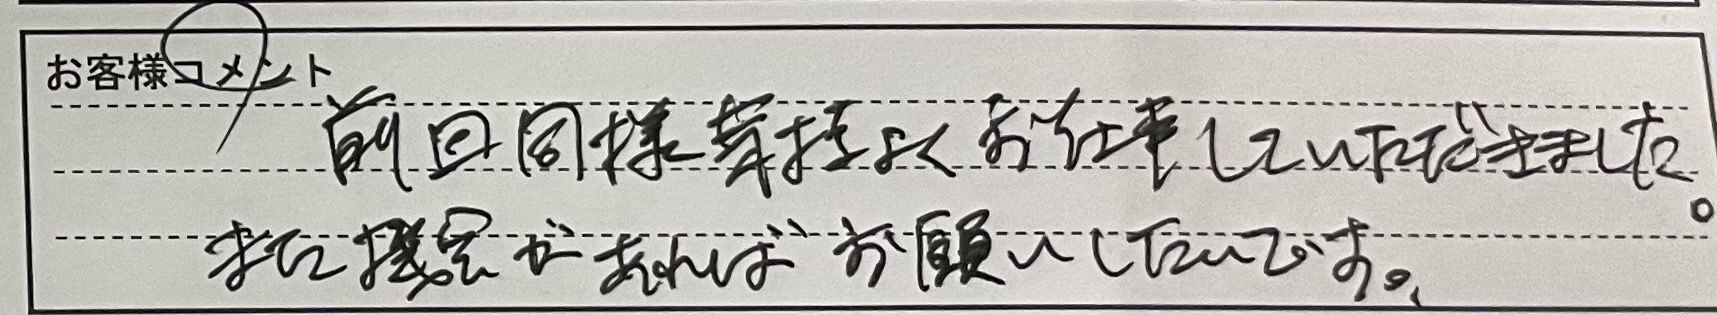 お客様コメント
前回同様気持よくお仕事していただきました。
また機会があればお願いしたいです。